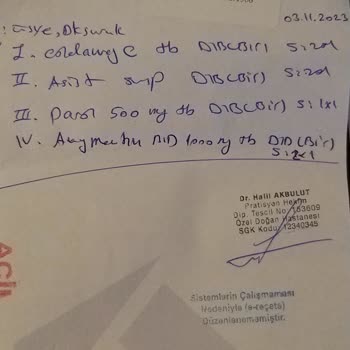 03.11.2023
I. coldaway C tb D1B(Bir) S: 2x1
II. Asist D1B(Bir) S: 2x1
III. Parol 500 mg tb D1B(Bir) S: 1x1
IV. BID 1000 mg tb D1B (Bir)
S: 2x1
Dr. Halil AKBULUT
Pratisyen Hekim
Dip. Tescil No: 153609
Özel Doğan Hastanesi
SGK Kodu: 12340345
ACİL
Sistemlerin Çalışmaması
Nedeniyle (e-reçete)
Düzenlenememiştir.